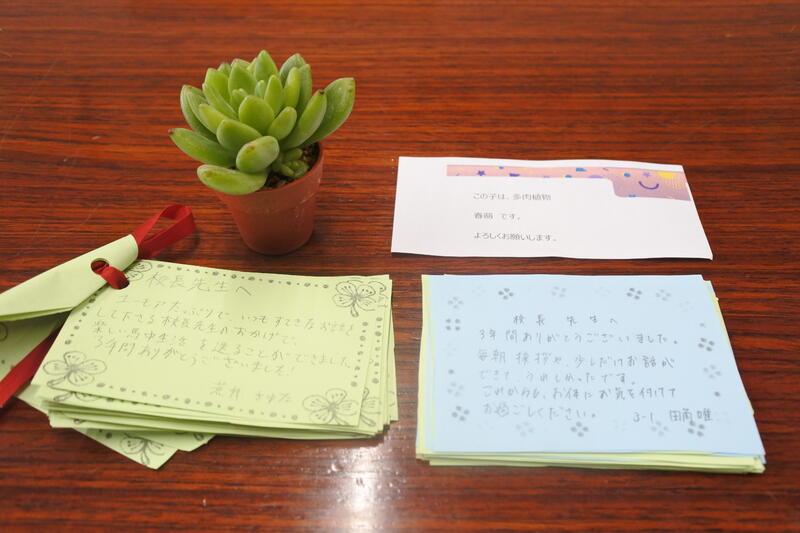 この子は、多肉植物
春萌 です。
よろしくお願いします。
校長先生へ
ユーモアたっぷりで、いつもすてきなお話を
してださる校長先生のおかげで、
楽しい馬中生活を送ることができました。
3年間ありがとうございました!
荒井
校長先生へ
3年間ありがとうございました。
毎朝挨拶や、少しだけお話が
できて、うれしかったです。
これからも、お体にお気を付けて
お過ごしください。 3-1 唯